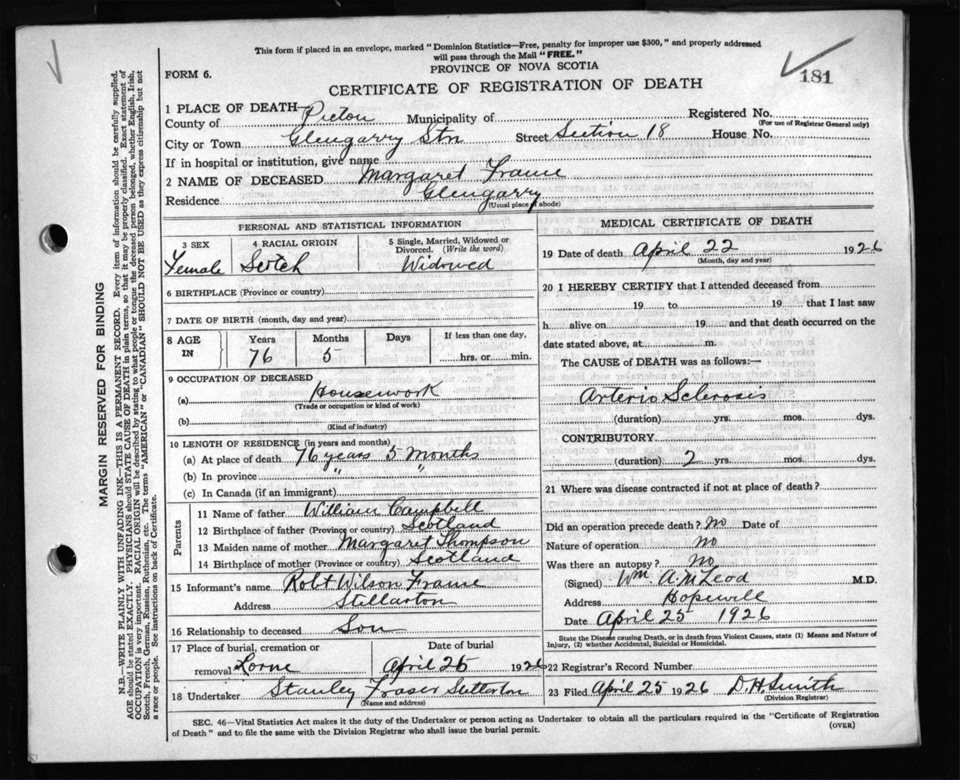 This form if placed in an envelope, marked "Dominion Statistics—Free, penalty for improper use $300," and properly addressed
will pass through the Mail "FREE."
PROVINCE OF NOVA SCOTIA
FORM 6.
181
CERTIFICATE OF REGISTRATION OF DEATH
1 PLACE OF DEATH—
County of Pictou Municipality of Registered No.
(For use of Registrar General only)
City or Town Glengarry Stn Street Section 18 House No.
If in hospital or institution, give name
2 NAME OF DECEASED Margaret Frame
Residence Glengarry
(Usual place of abode)
PERSONAL AND STATISTICAL INFORMATION
3 SEX 4 RACIAL ORIGIN 5 Single, Married, Widowed or Divorced. (Write the word)
Female Scotch Widowed
6 BIRTHPLACE (Province or country)
7 DATE OF BIRTH (month, day and year)
8 AGE IN Years Months Days If less than one day,
76 5 hrs. or min.
9 OCCUPATION OF DECEASED
(a) Housework
(Trade or occupation or kind of work)
(b)
(Kind of industry)
10 LENGTH OF RESIDENCE (in years and months)
(a) At place of death 76 years 5 Months
(b) In province " "
(c) In Canada (if an immigrant)
Parents
11 Name of father William Campbell
12 Birthplace of father (Province or country) Scotland
13 Maiden name of mother Margaret Thompson
14 Birthplace of mother (Province or country) Scotland
15 Informant's name Robt Wilson Frame
Address Stellarton
16 Relationship to deceased Son
17 Place of burial, cremation or Date of burial
removal Lorne April 25 1926
18 Undertaker Stanley Fraser
(Name and address)
MEDICAL CERTIFICATE OF DEATH
19 Date of death April 22 1926
(Month, day and year)
20 I HEREBY CERTIFY that I attended deceased from
19 to 19 that I last saw
h alive on 19 and that death occurred on the
date stated above, at m.
The CAUSE of DEATH was as follows:—
Arterio Sclerosis
(duration) yrs. mos. dys.
CONTRIBUTORY
(duration) 2 yrs. mos. dys.
21 Where was disease contracted if not at place of death?
Did an operation precede death? No Date of
Nature of operation no
Was there an autopsy? No
(Signed) Wm A. McLeod M.D.
Address Hopewell
Date April 25 1926
State the Disease causing Death, or in death from Violent Causes, state (1) Means and Nature of
Injury, (2) whether Accidental, Suicidal or Homicidal.
22 Registrar's Record Number
23 Filed April 25 1926 D.H. Smith
(Division Registrar)
SEC. 46—Vital Statistics Act makes it the duty of the Undertaker or person acting as Undertaker to obtain all the particulars required in the "Certificate of Registration
of Death" and to file the same with the Division Registrar who shall issue the burial permit.
(OVER)
MARGIN RESERVED FOR BINDING
N.B.—WRITE PLAINLY WITH UNFADING INK—THIS IS A PERMANENT RECORD. Every item of information should be carefully supplied.
AGE should be stated EXACTLY. PHYSICIANS should STATE CAUSE OF DEATH in plain terms, so that it may be properly classified. Exact statement of
OCCUPATION is very important. RACIAL ORIGIN will be described by stating to what people or tongue the deceased person belonged, whether English, Irish,
Scotch, French, German, Russian, Ruthenian, etc. The terms "AMERICAN" or "CANADIAN" SHOULD NOT BE USED as they express citizenship but not
a race or people. See instructions on back of Certificate.